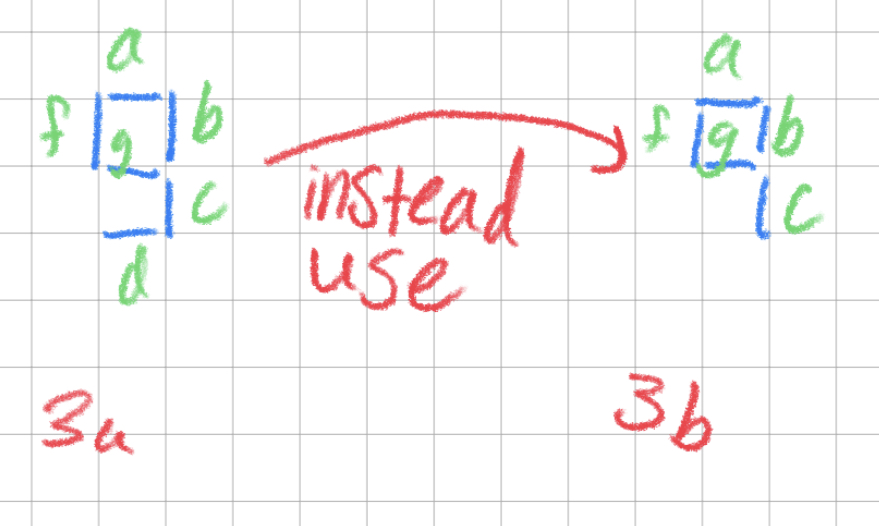 a
f g b
c
d
instead
use
a
f g b
c
3a
3b